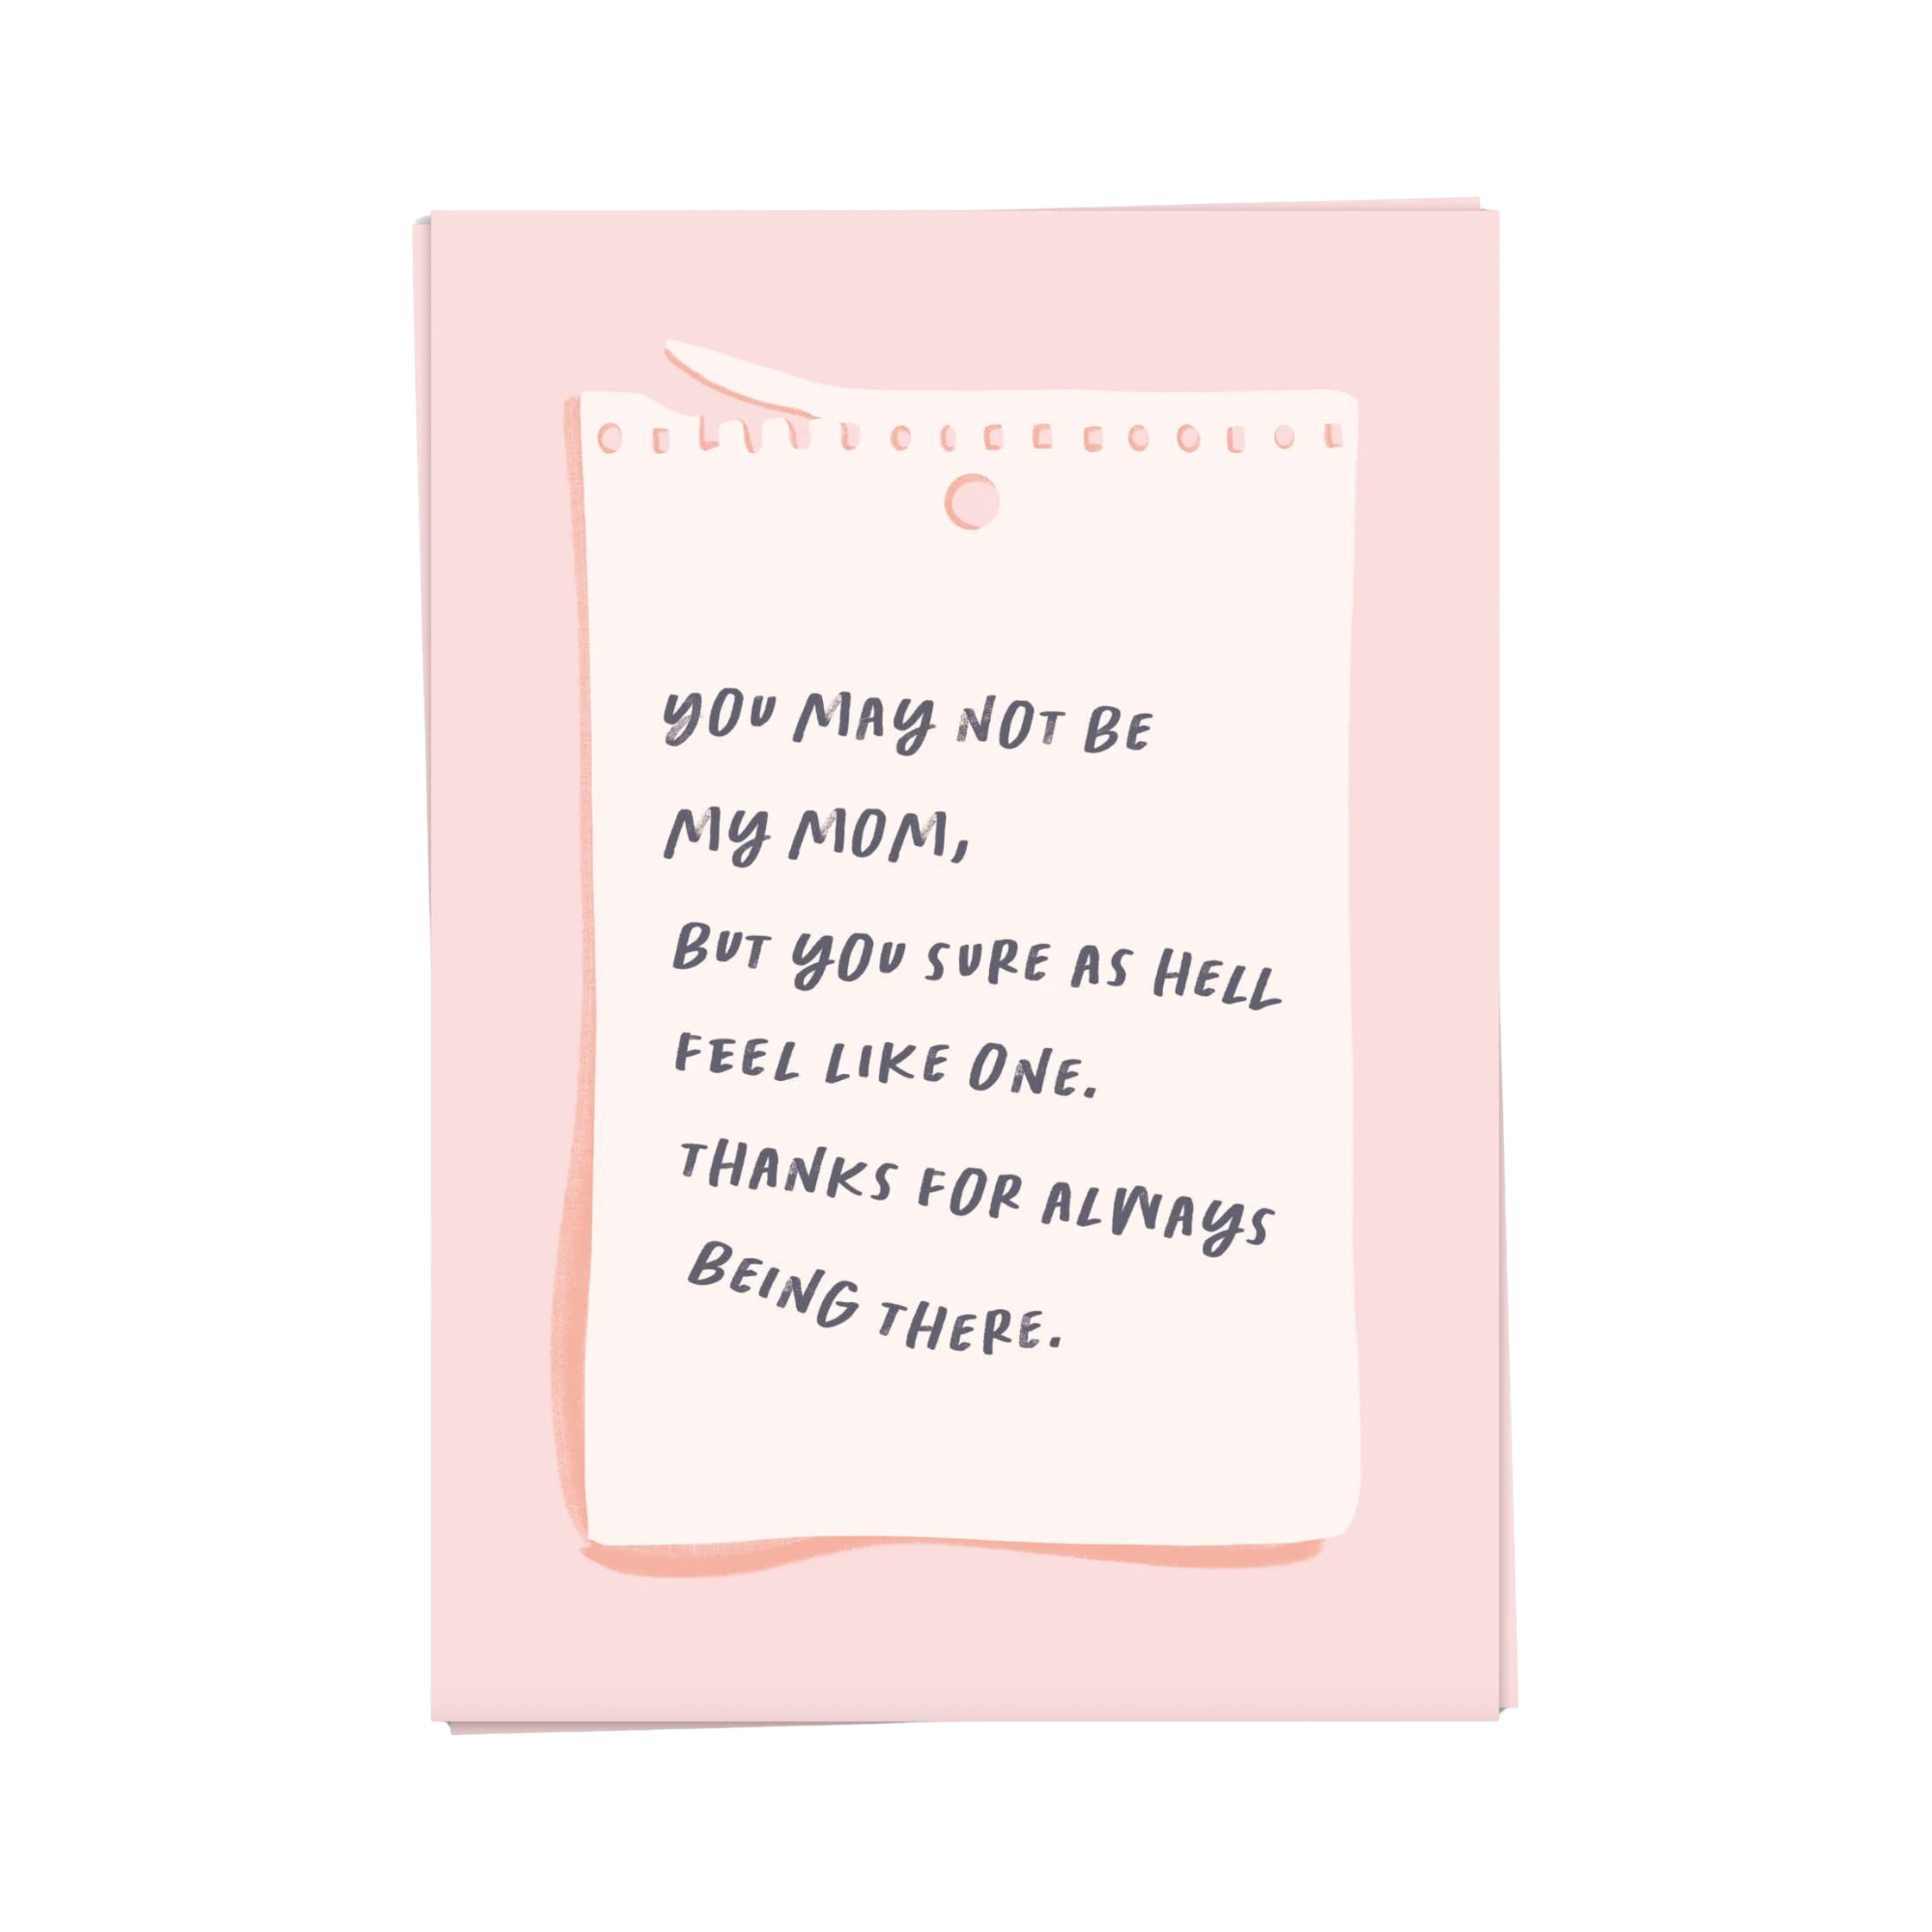 YOU MAY NOT BE
MY MOM,
BUT YOU SURE AS HELL
FEEL LIKE ONE.
THANKS FOR ALWAYS
BEING THERE.